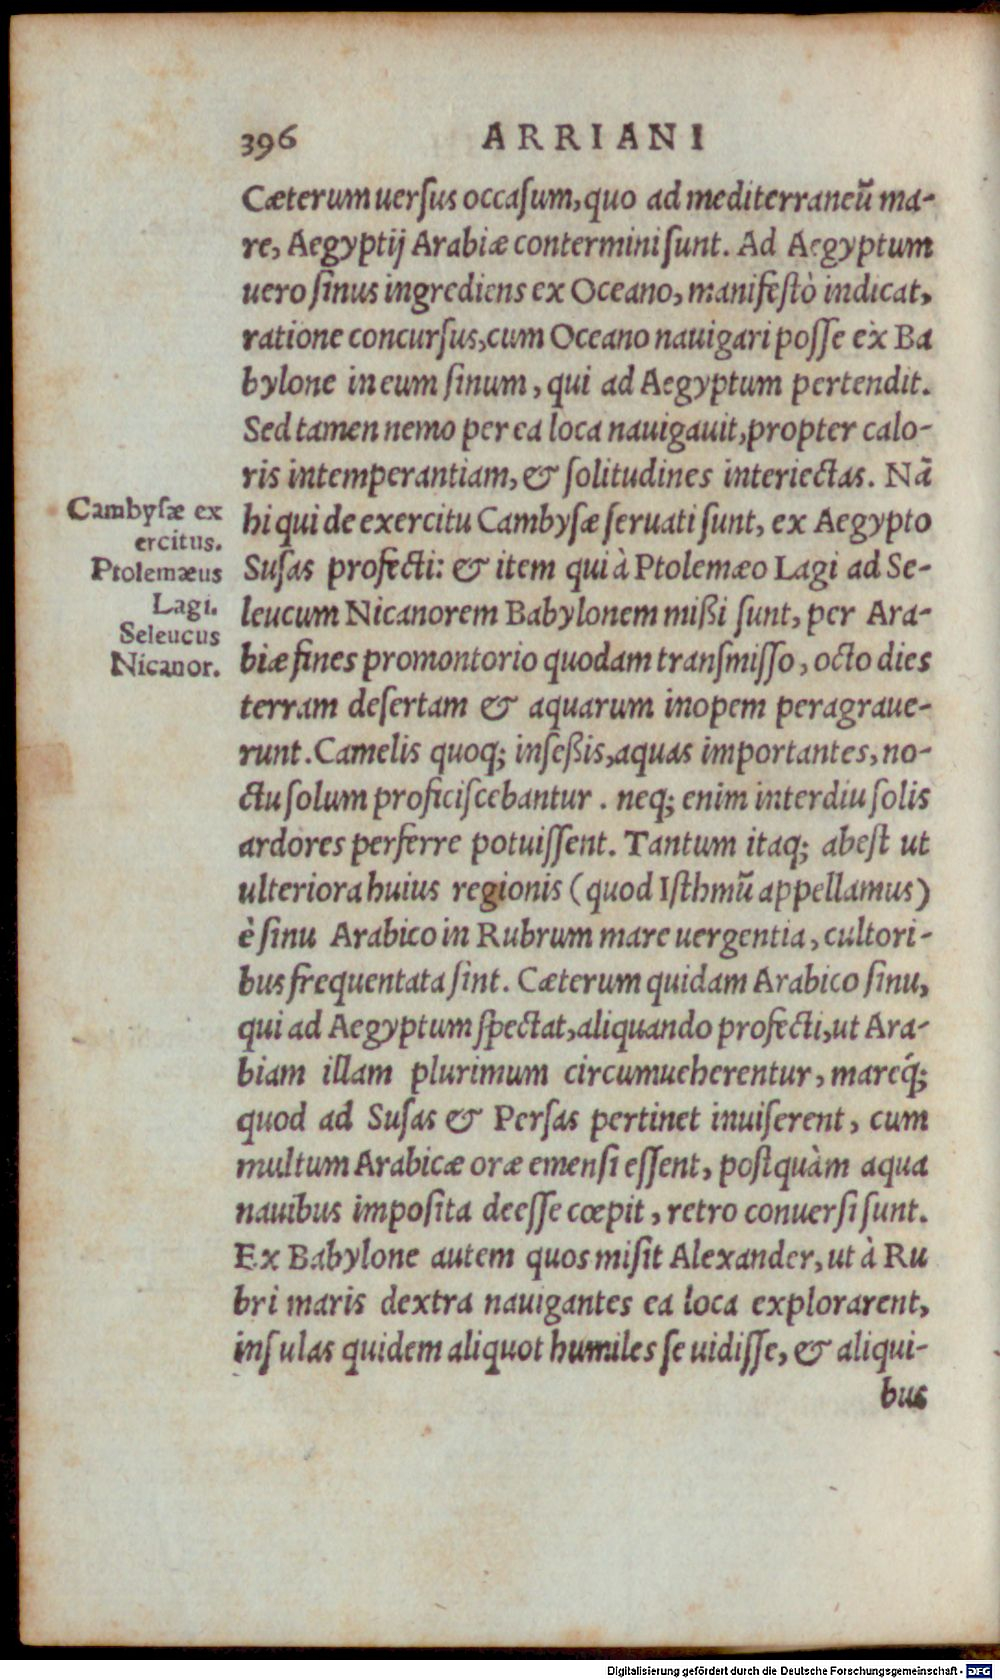 396 ARRIANI
Cæterum uersus occasum, quo ad mediterraneũ ma-
re, Aegyptij Arabiæ contermini sunt. Ad Aegyptum
uero sinus ingrediens ex Oceano, manifestò indicat,
ratione concursus, cum Oceano nauigari posse ex Ba
bylone in eum sinum, qui ad Aegyptum pertendit.
Sed tamen nemo per ea loca nauigauit, propter calo-
ris intemperantiam, & solitudines interiectas. Nã
hi qui de exercitu Cambysæ seruati sunt, ex Aegypto
Susas profecti: & item qui à Ptolemæo Lagi ad Se-
leucum Nicanorem Babylonem mißi sunt, per Ara-
biæ fines promontorio quodam transmisso, octo dies
terram desertam & aquarum inopem peragraue-
runt. Camelis quoq; inseßis, aquas importantes, no-
ctu solum proficiscebantur. neq; enim interdiu solis
ardores perferre potuissent. Tantum itaq; abest ut
ulteriora huius regionis (quod Isthmũ appellamus)
è sinu Arabico in Rubrum mare uergentia, cultori-
bus frequentata sint. Cæterum quidam Arabico sinu,
qui ad Aegyptum spectat, aliquando profecti, ut Ara-
biam illam plurimum circumueherentur, mareq́;
quod ad Susas & Persas pertinet inuiserent, cum
multum Arabicæ oræ emensi essent, postquàm aqua
nauibus imposita deesse cœpit, retro conuersi sunt.
Ex Babylone autem quos misit Alexander, ut à Ru
bri maris dextra nauigantes ea loca explorarent,
insulas quidem aliquot humiles se uidisse, & aliqui-
bus
Cambysæ ex
ercitus.
Ptolemæus
Lagi.
Seleucus
Nicanor.
Digitalisierung gefördert durch die Deutsche Forschungsgemeinschaft - DFG